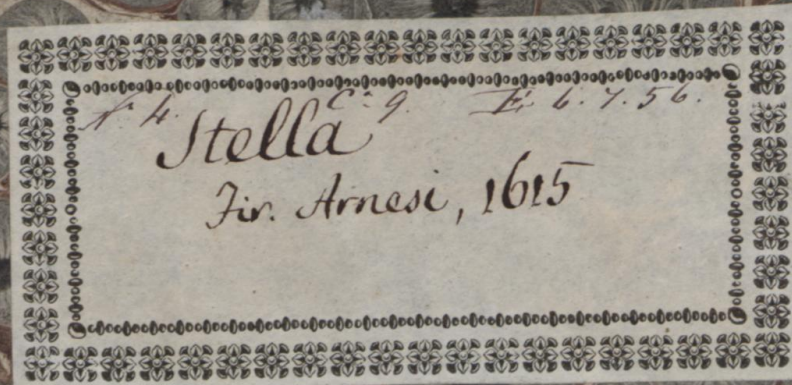 N.º 4. C.ª 9. E. 6. 7. 56.
Stella
Fir. Arnesi, 1615